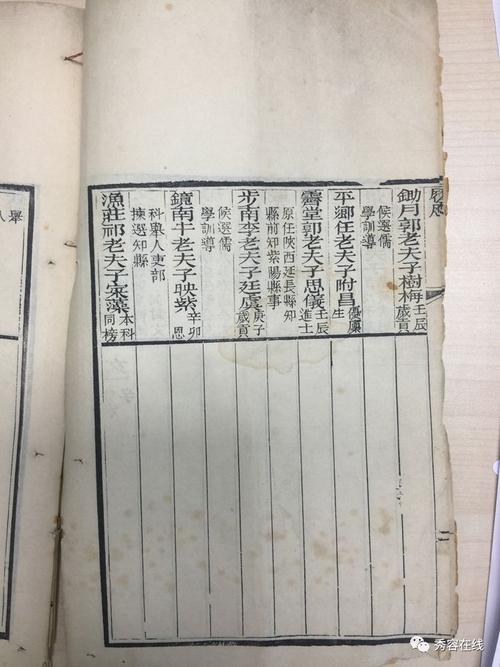 鋤月郭老夫子樹梅壬辰歲貢
候選儒學訓導
平鄉任老夫子附昌優廩生
霽堂郭老夫子思儀壬辰進士
原任陝西延長縣知縣前知紫陽縣事
步南李老夫子廷虞庚子歲貢
候選儒學訓導
鏡南牛老夫子映紫辛卯恩
科舉人吏部揀選知縣
漁莊祁老夫子宋藻本科同榜
舉人
二
秀容在线